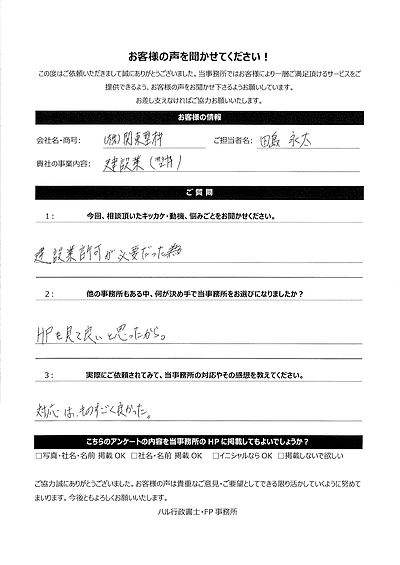 お客様の声を聞かせてください！
この度はご依頼いただきまして誠にありがとうございました。当事務所ではお客様により一層ご満足頂けるサービスをご
提供できるよう、お客様の声をお聞かせ下さるようお願いしています。
お差し支えなければご協力お願いいたします。
お客様の情報
会社名・商号: (株)関東塗料 ご担当者名: 田島 永太
貴社の事業内容: 建設業（塗料）
ご 質 問
1： 今回、相談頂いたキッカケ・動機、悩みごとをお聞かせください。
建設業許可が必要だった為
2： 他の事務所もある中、何が決め手で当事務所をお選びになりましたか？
HPを見て良いと思ったから。
3： 実際にご依頼されてみて、当事務所の対応やその感想を教えてください。
対応は、ものすごく良かった。
こちらのアンケートの内容を当事務所の HP に掲載してもよいでしょうか？
□写真・社名・名前 掲載 OK □社名・名前 掲載 OK □イニシャルなら OK □掲載しないで欲しい
ご協力誠にありがとうございました。お客様の声は貴重なご意見・ご要望としてできる限り活かしていくように努めて
まいります。今後ともよろしくお願いいたします。
ハル行政書士・FP 事務所